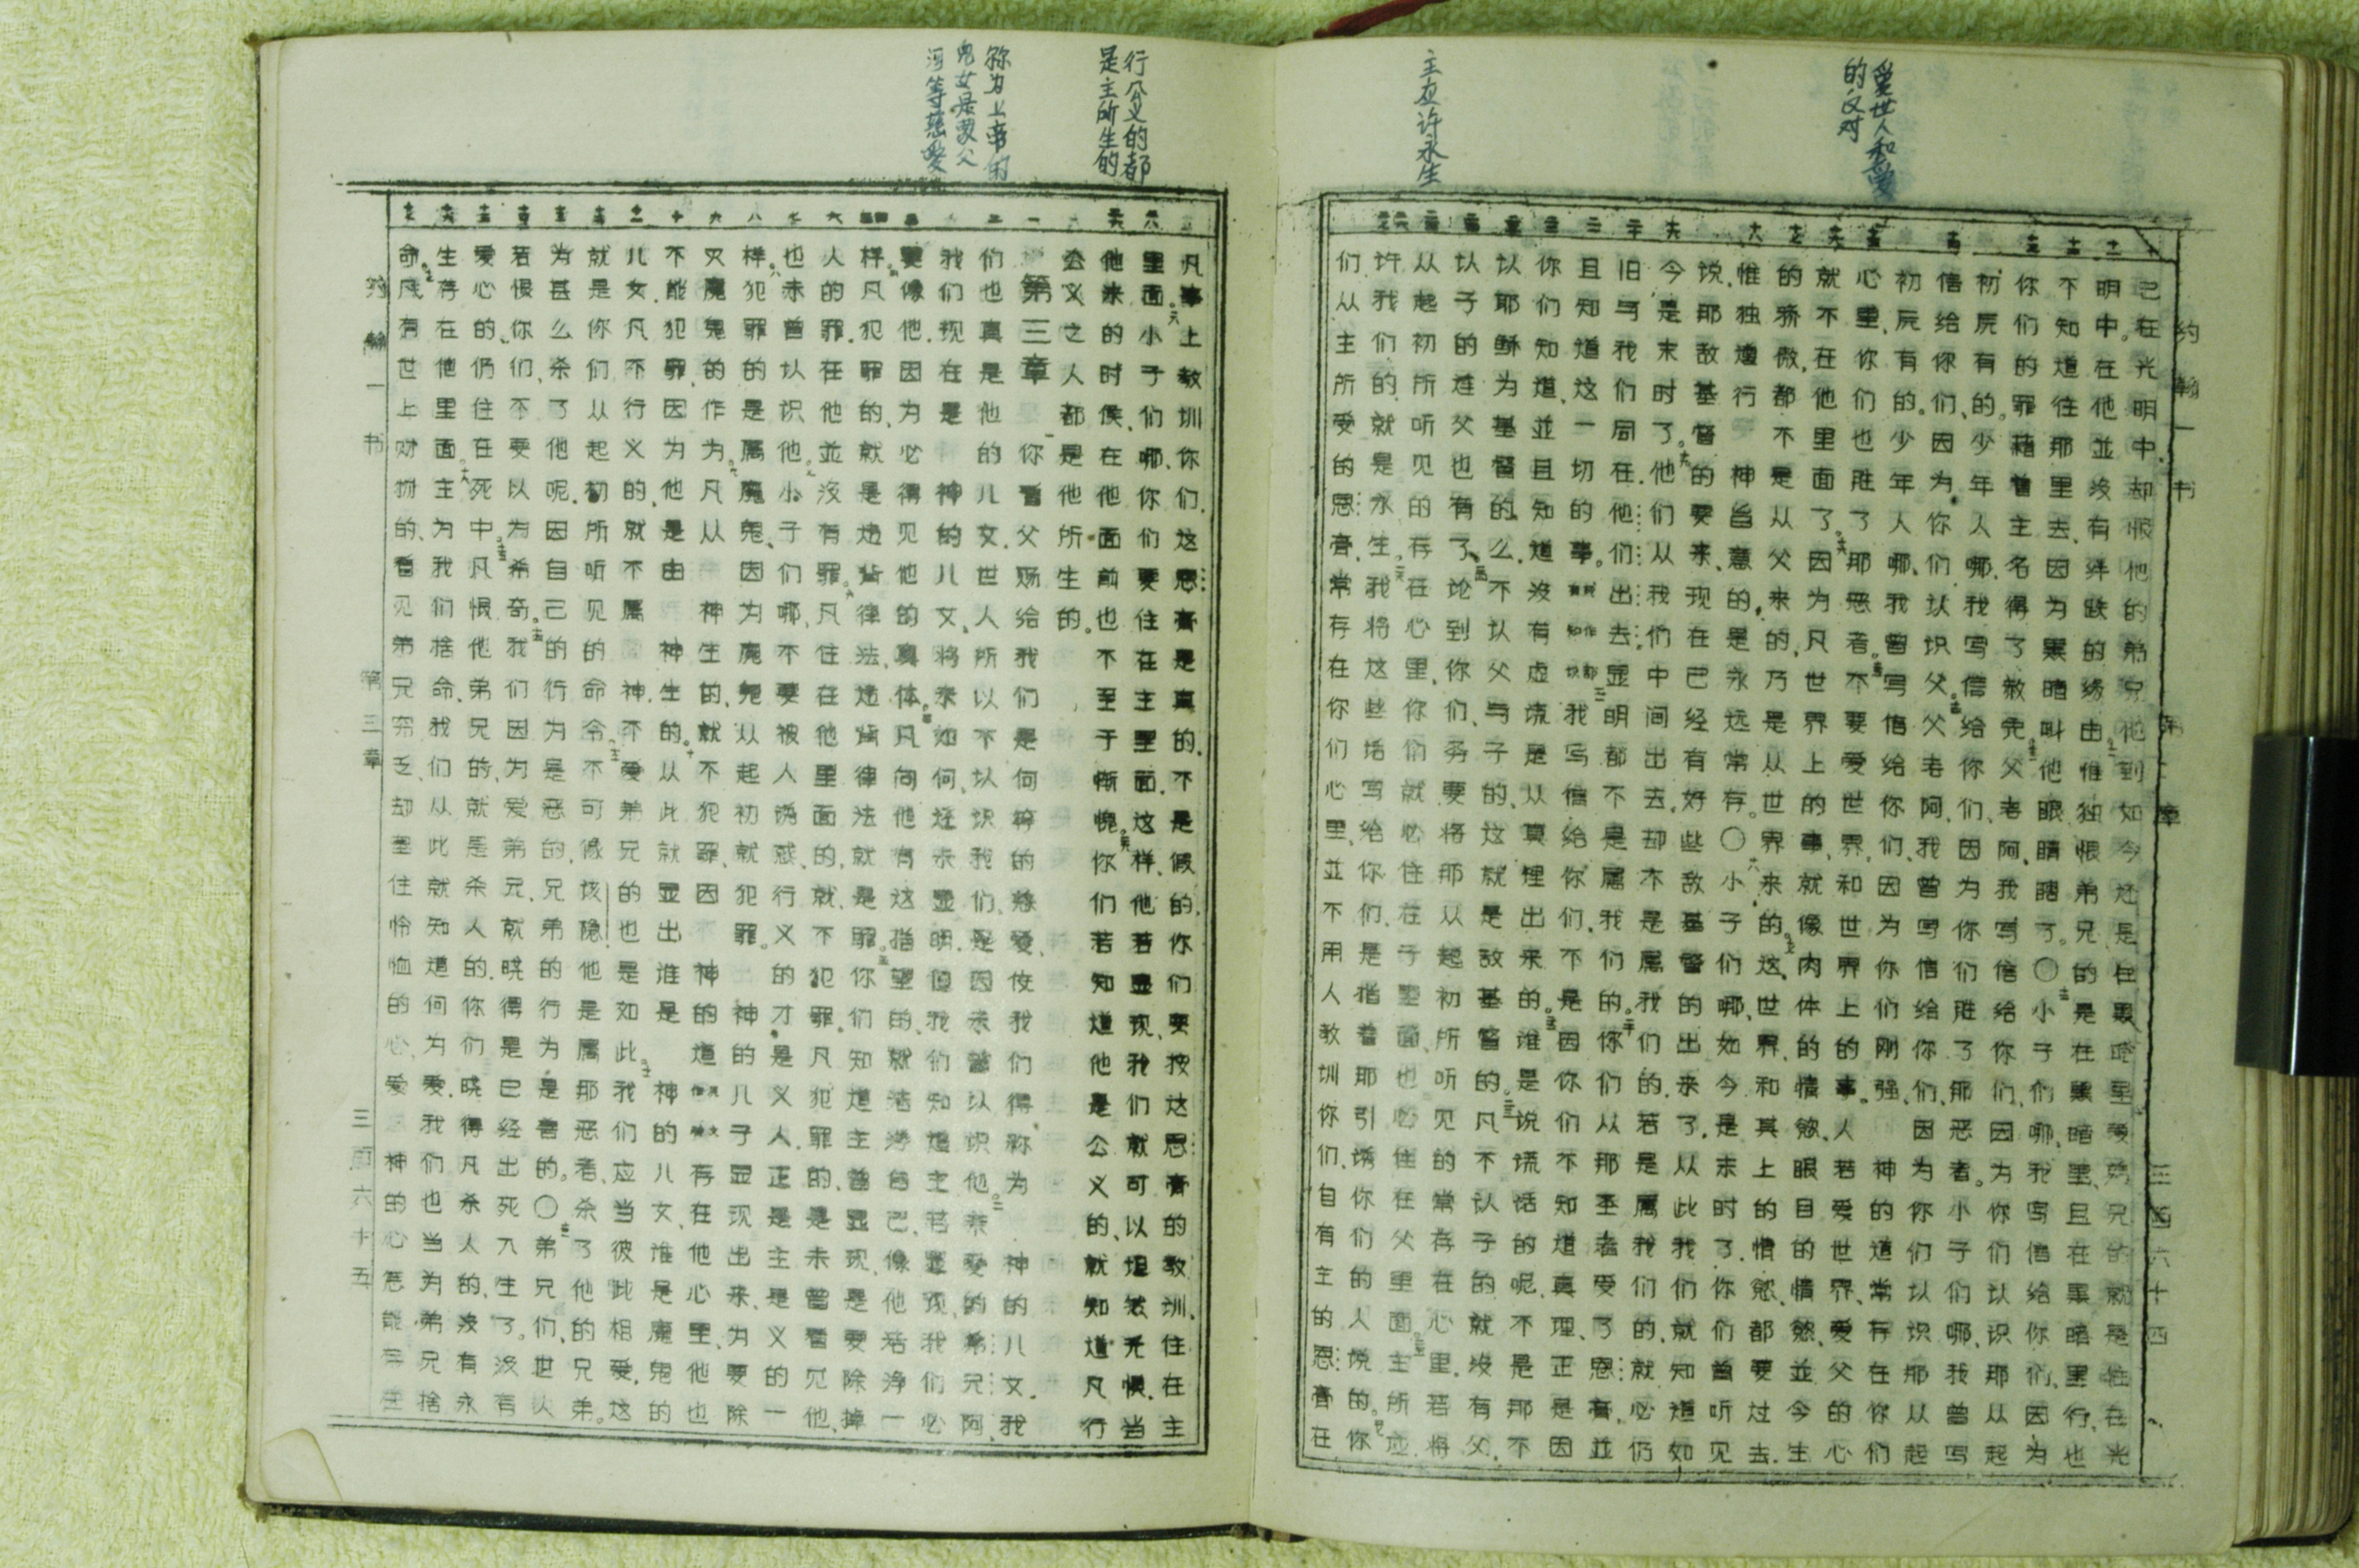 爱世人和爱
的父对
主应许永生
约翰一书 第二章 三百六十四
己在光明中.却恨他的弟兄他到如今还是在黑暗里爱弟兄的就是住在光
明中。在他並没有绊跌的缘由惟独恨弟兄的是在黑暗里、且在黑暗里行、也
不知道往那里去、因为黑暗叫他眼睛瞎了。〇小子们哪、我写信给你们、因为
你们的罪藉着主名得了赦免父老阿、我写信给你们、因为你们认识那从起
初原有的。少年人哪、我写信给你们、因为你们胜了那恶者。小子们哪、我曾写
信给你们、因为你们认识父。父老阿、我曾写信给你们、因为你们认识那从起
初原有的。少年人哪、我曾写信给你们、因为你们刚强、神的道常存在你们
心里、你们也胜了那恶者。不要爱世界和世界上的事。人若爱世界、爱父的心
就不在他里面了。因为凡世界上的事、就像肉体的情慾、眼目的情慾、並今生
的骄傲、都不是从父来的、乃是从世界来的。这世界和其上的情慾、都要过去.
惟独遵行 神旨意的、是永远常存。〇小子们哪、如今是末时了、你们曾听见
说、那敌基督的要来、现在已经有好些敌基督的出来了、从此我们就知道如
今是末时了。他们从我们中间出去、却不是属我们的、若是属我们的、就必仍
旧与我们同在.他们出去显明都不是属我们的。你们从那圣者受了恩膏、並
且知道这一切的事。我写信给你们、不是因你们不知道真理、正是因
你们知道、並且知道没有虚谎是从真理出来的。谁是说谎话的呢、不是那不
认耶稣为基督的么、不认父与子的、这就是敌基督的。凡不认子的就没有父、
认子的连父也有了、论到你们、务要将那从起初所听见的常存在心里。若将
从起初所听见的存在心里、你们就必住在子里面、也必住在父里面主所应
许我们的就是永生。我将这些话写给你们、是指着那引诱你们的人说的。你
们从主所受的恩膏、常存在你们心里、並不用人教训你们、自有主的恩膏在
行公义的都
是主所生的
称为上帝的
儿女是蒙父
何等慈爱
凡事上教训你们.这恩膏是真的、不是假的.你们要按这恩膏的教训、住在主
里面。小子们哪、你们要住在主里面.这样、他若显现、我们就可以坦然无惧.当
他来的时候、在他面前也不至于惭愧。你们若知道他是公义的、就知道凡行
公义之人都是他所生的。
第三章
你看父赐给我们是何等的慈爱使我们得称为 神的儿女.我
们也真是他的儿女.世人所以不认识我们、是因未曾认识他。亲爱的弟兄阿、
我们现在是 神的儿女、将来如何、还未显明.但我们知道主若显现我们必
要像他.因为必得见他的真体。凡向他有这指望的、就洁净自己、像他洁净一
样。凡犯罪的、就是违背律法.违背律法就是罪。你们知道主曾显现、是要除掉
人的罪.在他並没有罪。凡住在他里面的、就不犯罪。凡犯罪的、是未曾看见他、
也未曾认识他。小子们哪、不要被人诱惑、行义的才是义人.正是主是义的一
样。犯罪的是属魔鬼、因为魔鬼从起初就犯罪。 神的儿子显现出来、为要除
灭魔鬼的作为。凡从 神生的、就不犯罪、因 神的道存在他心里、他也
不能犯罪、因为他是由 神生的。从此就显出谁是 神的儿女、谁是魔鬼的
儿女.凡不行义的、就不属 神.不爱弟兄的也是如此。我们应当彼此相爱.这
就是你们从起初所听见的命令。不可像该隐.他是属那恶者、杀了他的兄弟。
为甚么杀了他呢.因自己的行为是恶的、兄弟的行为是善的。〇弟兄们、世
若恨你们、不要以为希奇。我们因为爱弟兄就晓得是已经出死入生了.没有
爱心的、仍住在死中。凡恨他弟兄的、就是杀人的.你们晓得凡杀人的、没有永
生存在他里面。主为我们捨命、我们从此就知道何为爱.我们也当为弟兄捨
命。凡有世上财物的、看见弟兄穷乏却塞住怜恤的心、爱 神的心怎能存在
约翰一书 第三章 三百六十五